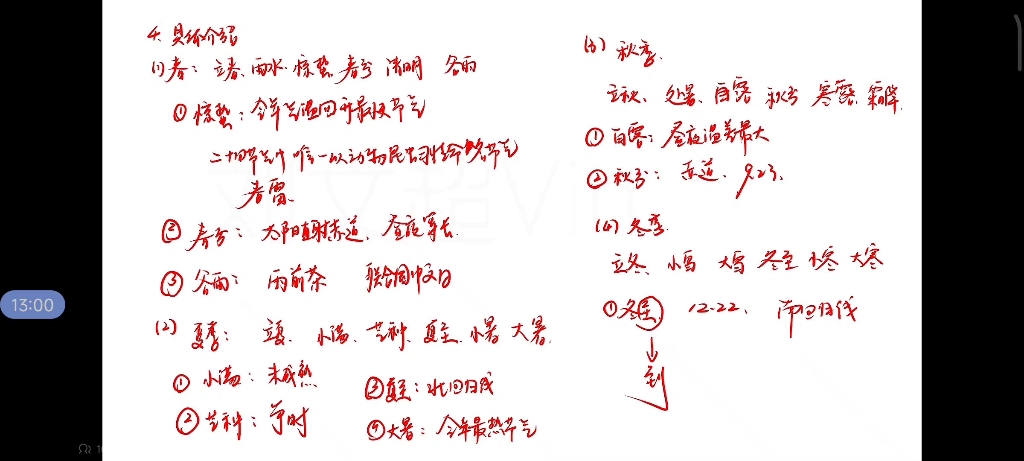 4. 具体介绍
(1) 春：立春、雨水、惊蛰、春分 清明 谷雨
① 惊蛰：全年气温回升最快节气
二十四节气中 唯一以动物昆虫习性给命名节气
春雷
② 春分：太阳直射赤道、昼夜等长
③ 谷雨：雨前茶 联合国中文日
(2) 夏季：立夏、小满、芒种、夏至、小暑 大暑
① 小满：未成熟
② 芒种：争时
③ 夏至：北回归线
④ 大暑：全年最热节气
(3) 秋季
立秋、处暑、白露 秋分 寒露 霜降
① 白露：昼夜温差最大
② 秋分：赤道、9.23、
(4) 冬季
立冬、小雪 大雪 冬至 小寒 大寒
① 冬至 12.22、南回归线
↓
到
13:00